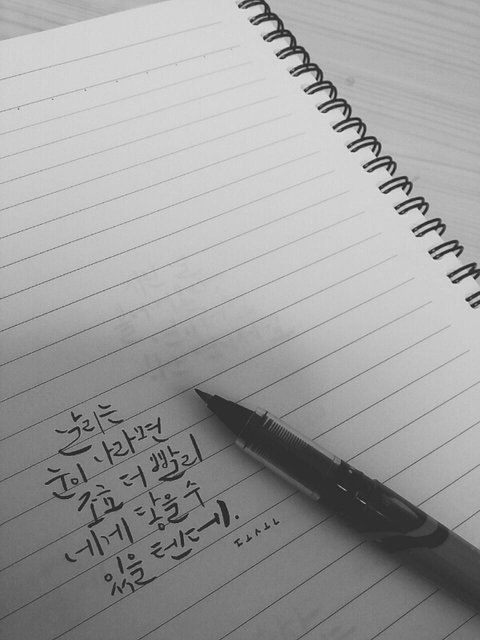 날리는
눈이 나라면
조금 더 빨리
네게 닿을 수
있을 텐데.